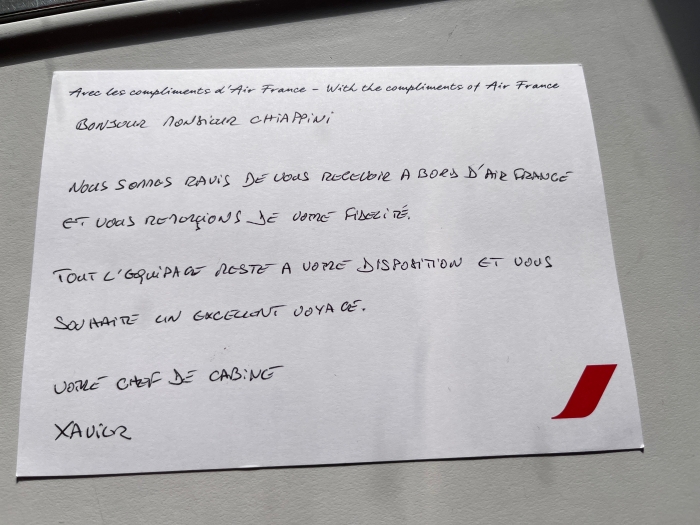 Avec les compliments d'Air France - With the compliments of Air France
BONJOUR MONSIEUR CHIAPPINI
NOUS SOMMES RAVIS DE VOUS RECEVOIR A BORD D'AIR FRANCE
ET VOUS REMERÇIONS DE VOTRE FIDELITÉ.
TOUT L'EQUIPAGE RESTE A VOTRE DISPOSITION ET VOUS
SOUHAITE UN EXCELLENT VOYAGE.
VOTRE CHEF DE CABINE
XAVIER